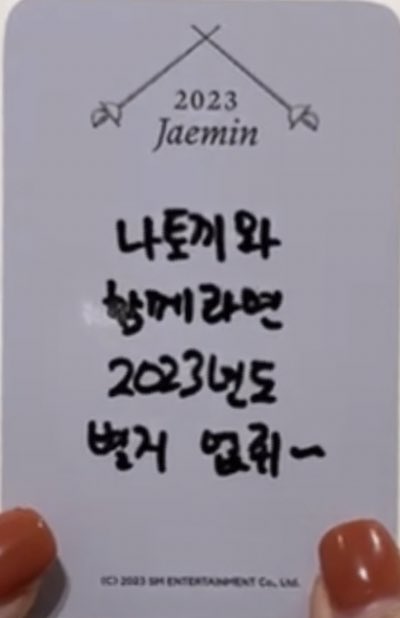 2023
Jaemin
나토끼와
함께라면
2023년도
별거 없쥐~
(C) 2023 SM ENTERTAINMENT Co., Ltd.